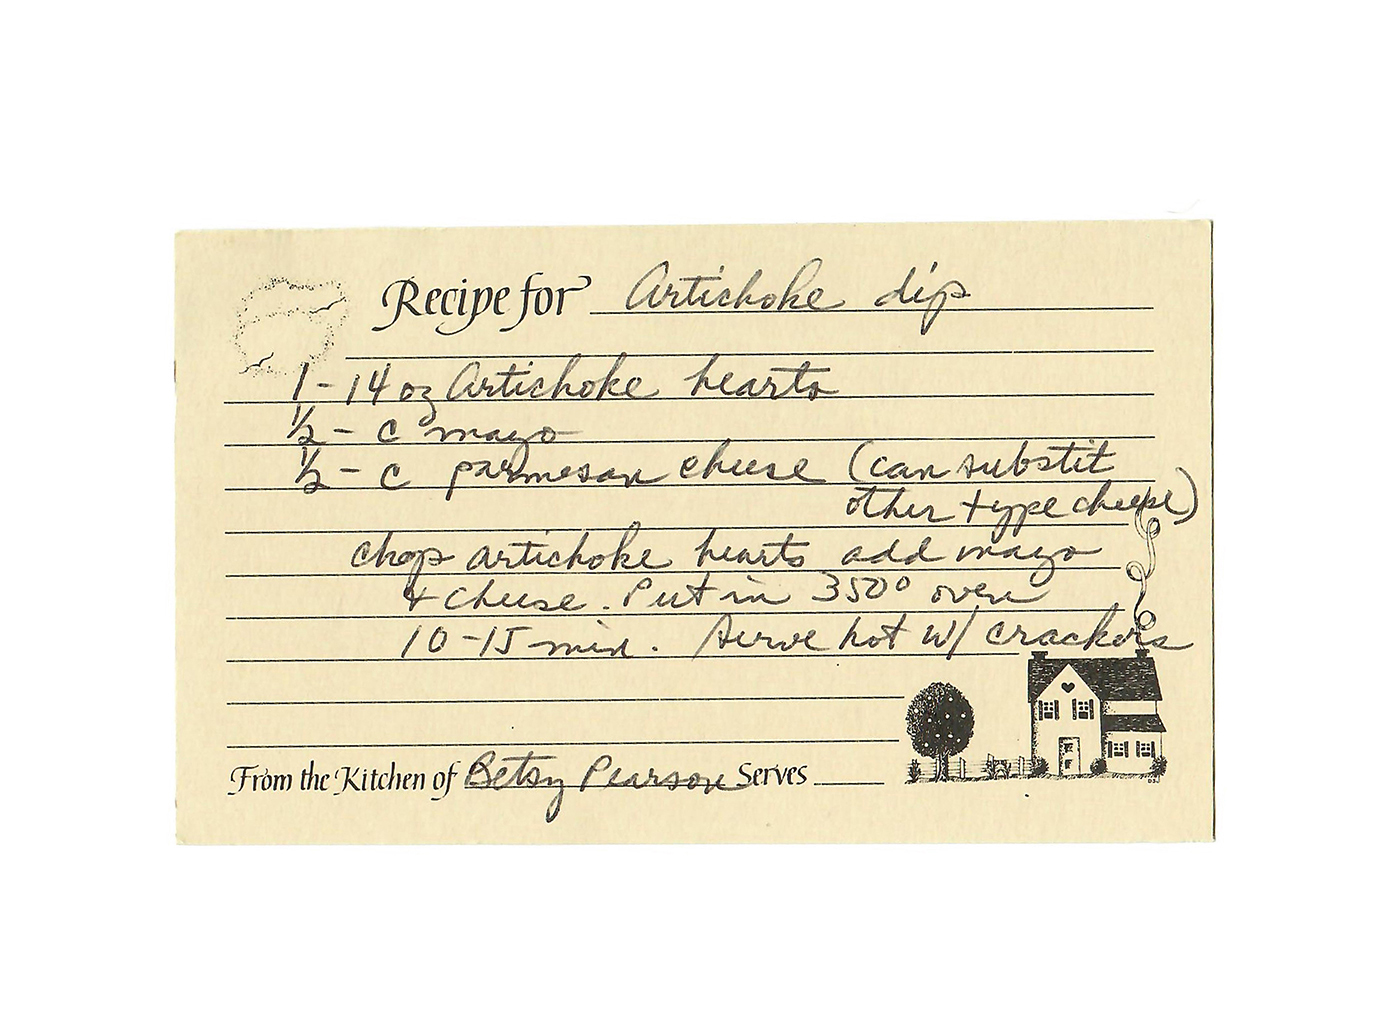 Recipe for Artichoke dip
1 - 14 oz Artichoke hearts
1/2 - c mayo
1/2 - c parmesan cheese (can substit
other type cheese)
chop artichoke hearts add mayo
& cheese. Put in 350° oven
10-15 min. Serve hot w/ crackers
From the Kitchen of Betsy Pearson Serves